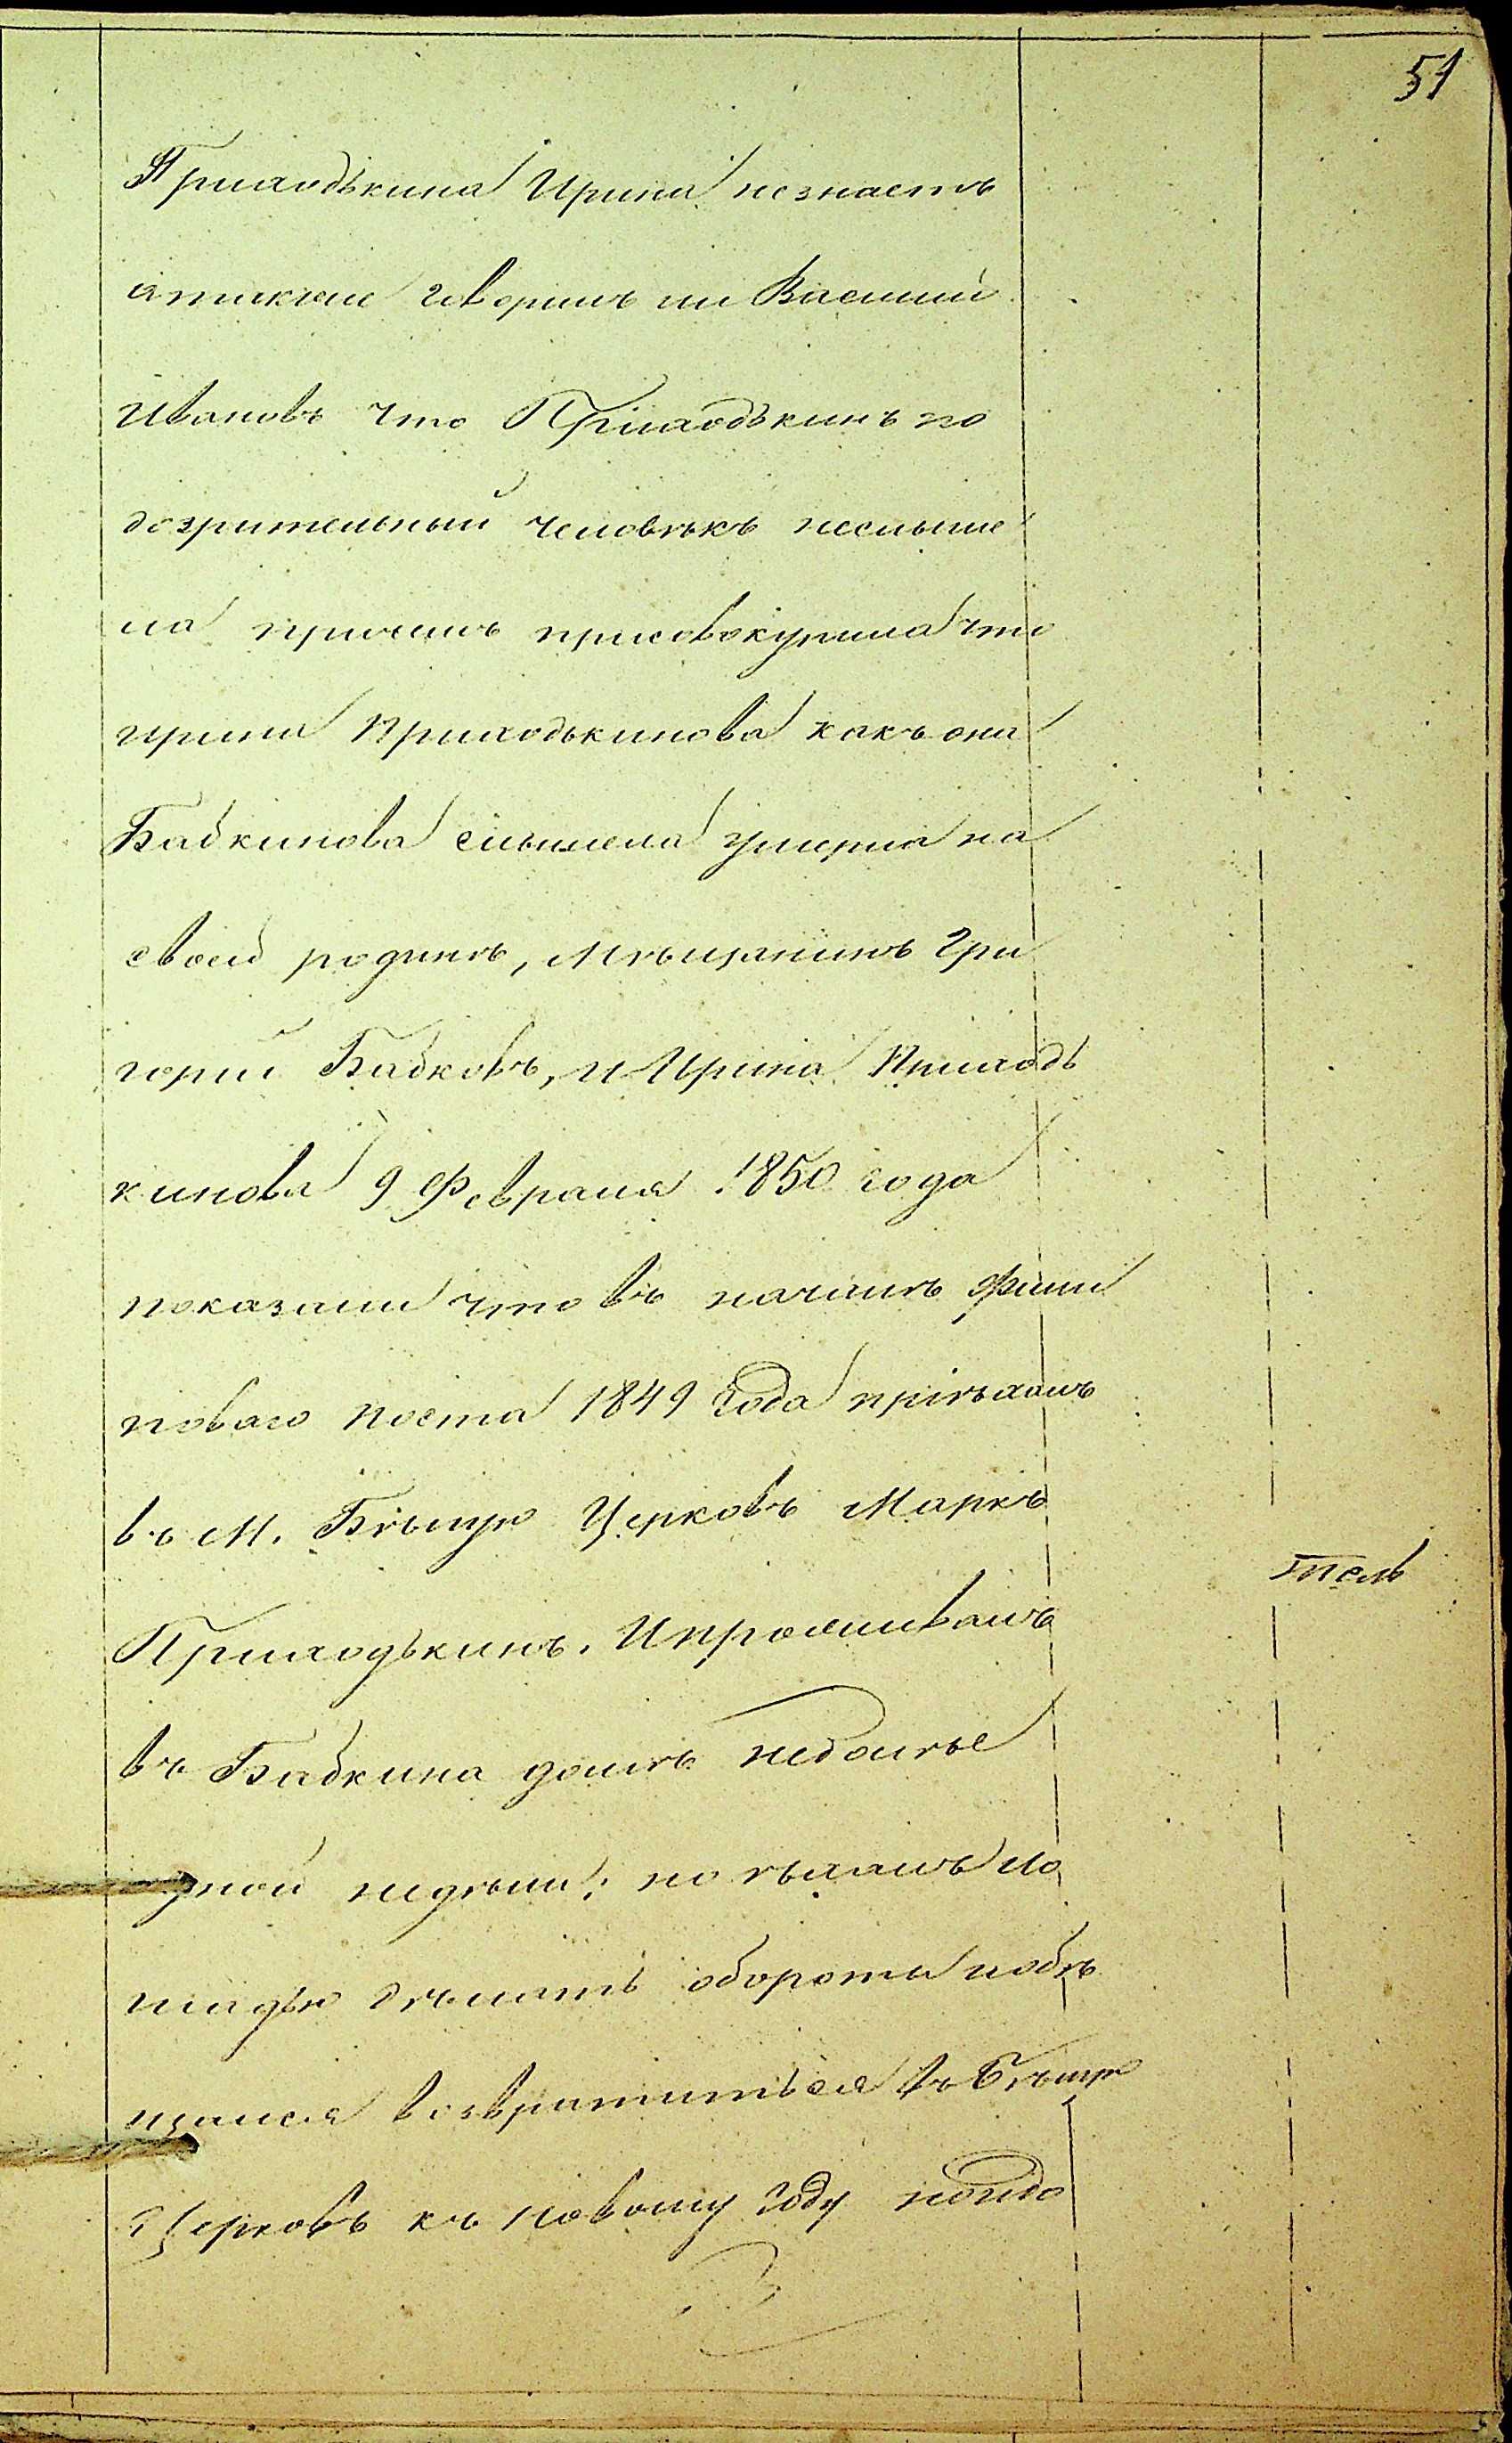 51
Приходькина Ирина незнаетъ
атакже говорилъ ли Василий
Ивановъ что Приходькинъ по
дозрительный человѣкъ неслыше
ла причемъ присовокупила что
ирина Приходькинова какъ она
Бабкинова слышела умерла на
своей родинѣ, Мѣщанинъ Гри
горий Бабковъ, и Ирина Приходь
кинова 9 Февраля 1850 года
показали что въ началѣ Фили
поваго поста 1849 года пріѣхалъ
въ М. Бѣлую Церковь Маркъ
Приходькинъ. Ипроживалъ
въ Бабкина домѣ неболѣе
одной недѣли; поѣхалъ ло
шадью дѣлать обороты иобѣ
щался возвратиться въ Бѣлую
Церковь къ Новому году
тель